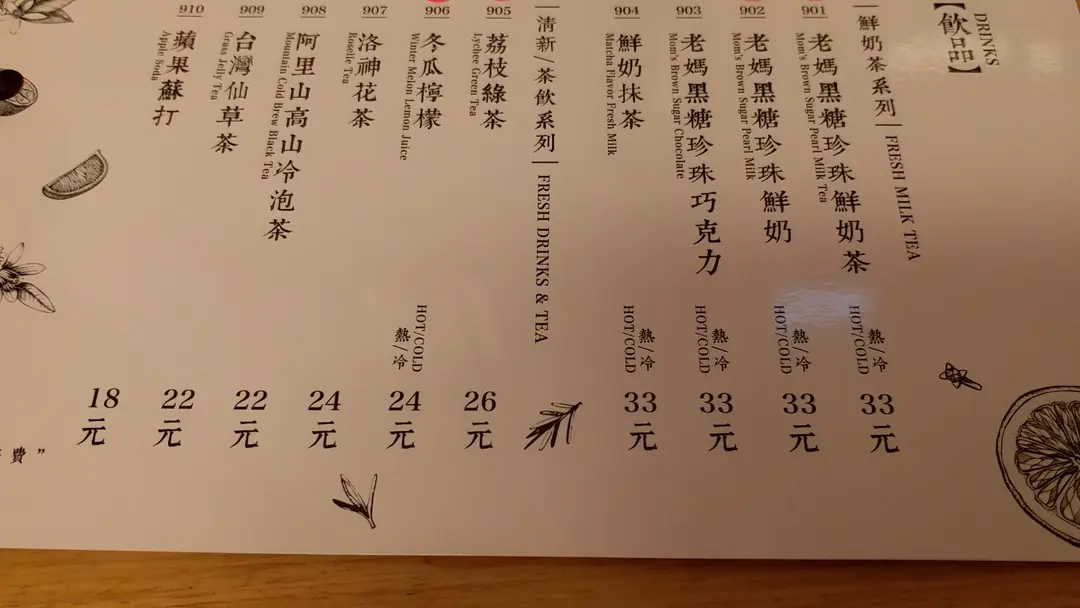 【飲品】
DRINKS
鮮奶茶系列
FRESH MILK TEA
901
老媽黑糖珍珠鮮奶茶
Mom's Brown Sugar Pearl Milk Tea
熱/冷
HOT/COLD
33元
902
老媽黑糖珍珠鮮奶
Mom's Brown Sugar Pearl Milk
熱/冷
HOT/COLD
33元
903
老媽黑糖珍珠巧克力
Mom's Brown Sugar Chocolate
熱/冷
HOT/COLD
33元
904
鮮奶抹茶
Matcha Flavor Fresh Milk
熱/冷
HOT/COLD
33元
清新/茶飲系列
FRESH DRINKS & TEA
905
荔枝綠茶
Lychee Green Tea
26元
906
冬瓜檸檬
Winter Melon Lemon Juice
HOT/COLD
熱/冷
24元
907
洛神花茶
Roselle Tea
24元
908
阿里山高山冷泡茶
Mountain Cold Brew Black Tea
22元
909
台灣仙草茶
Grass Jelly Tea
22元
910
蘋果蘇打
Apple Soda
18元
費”